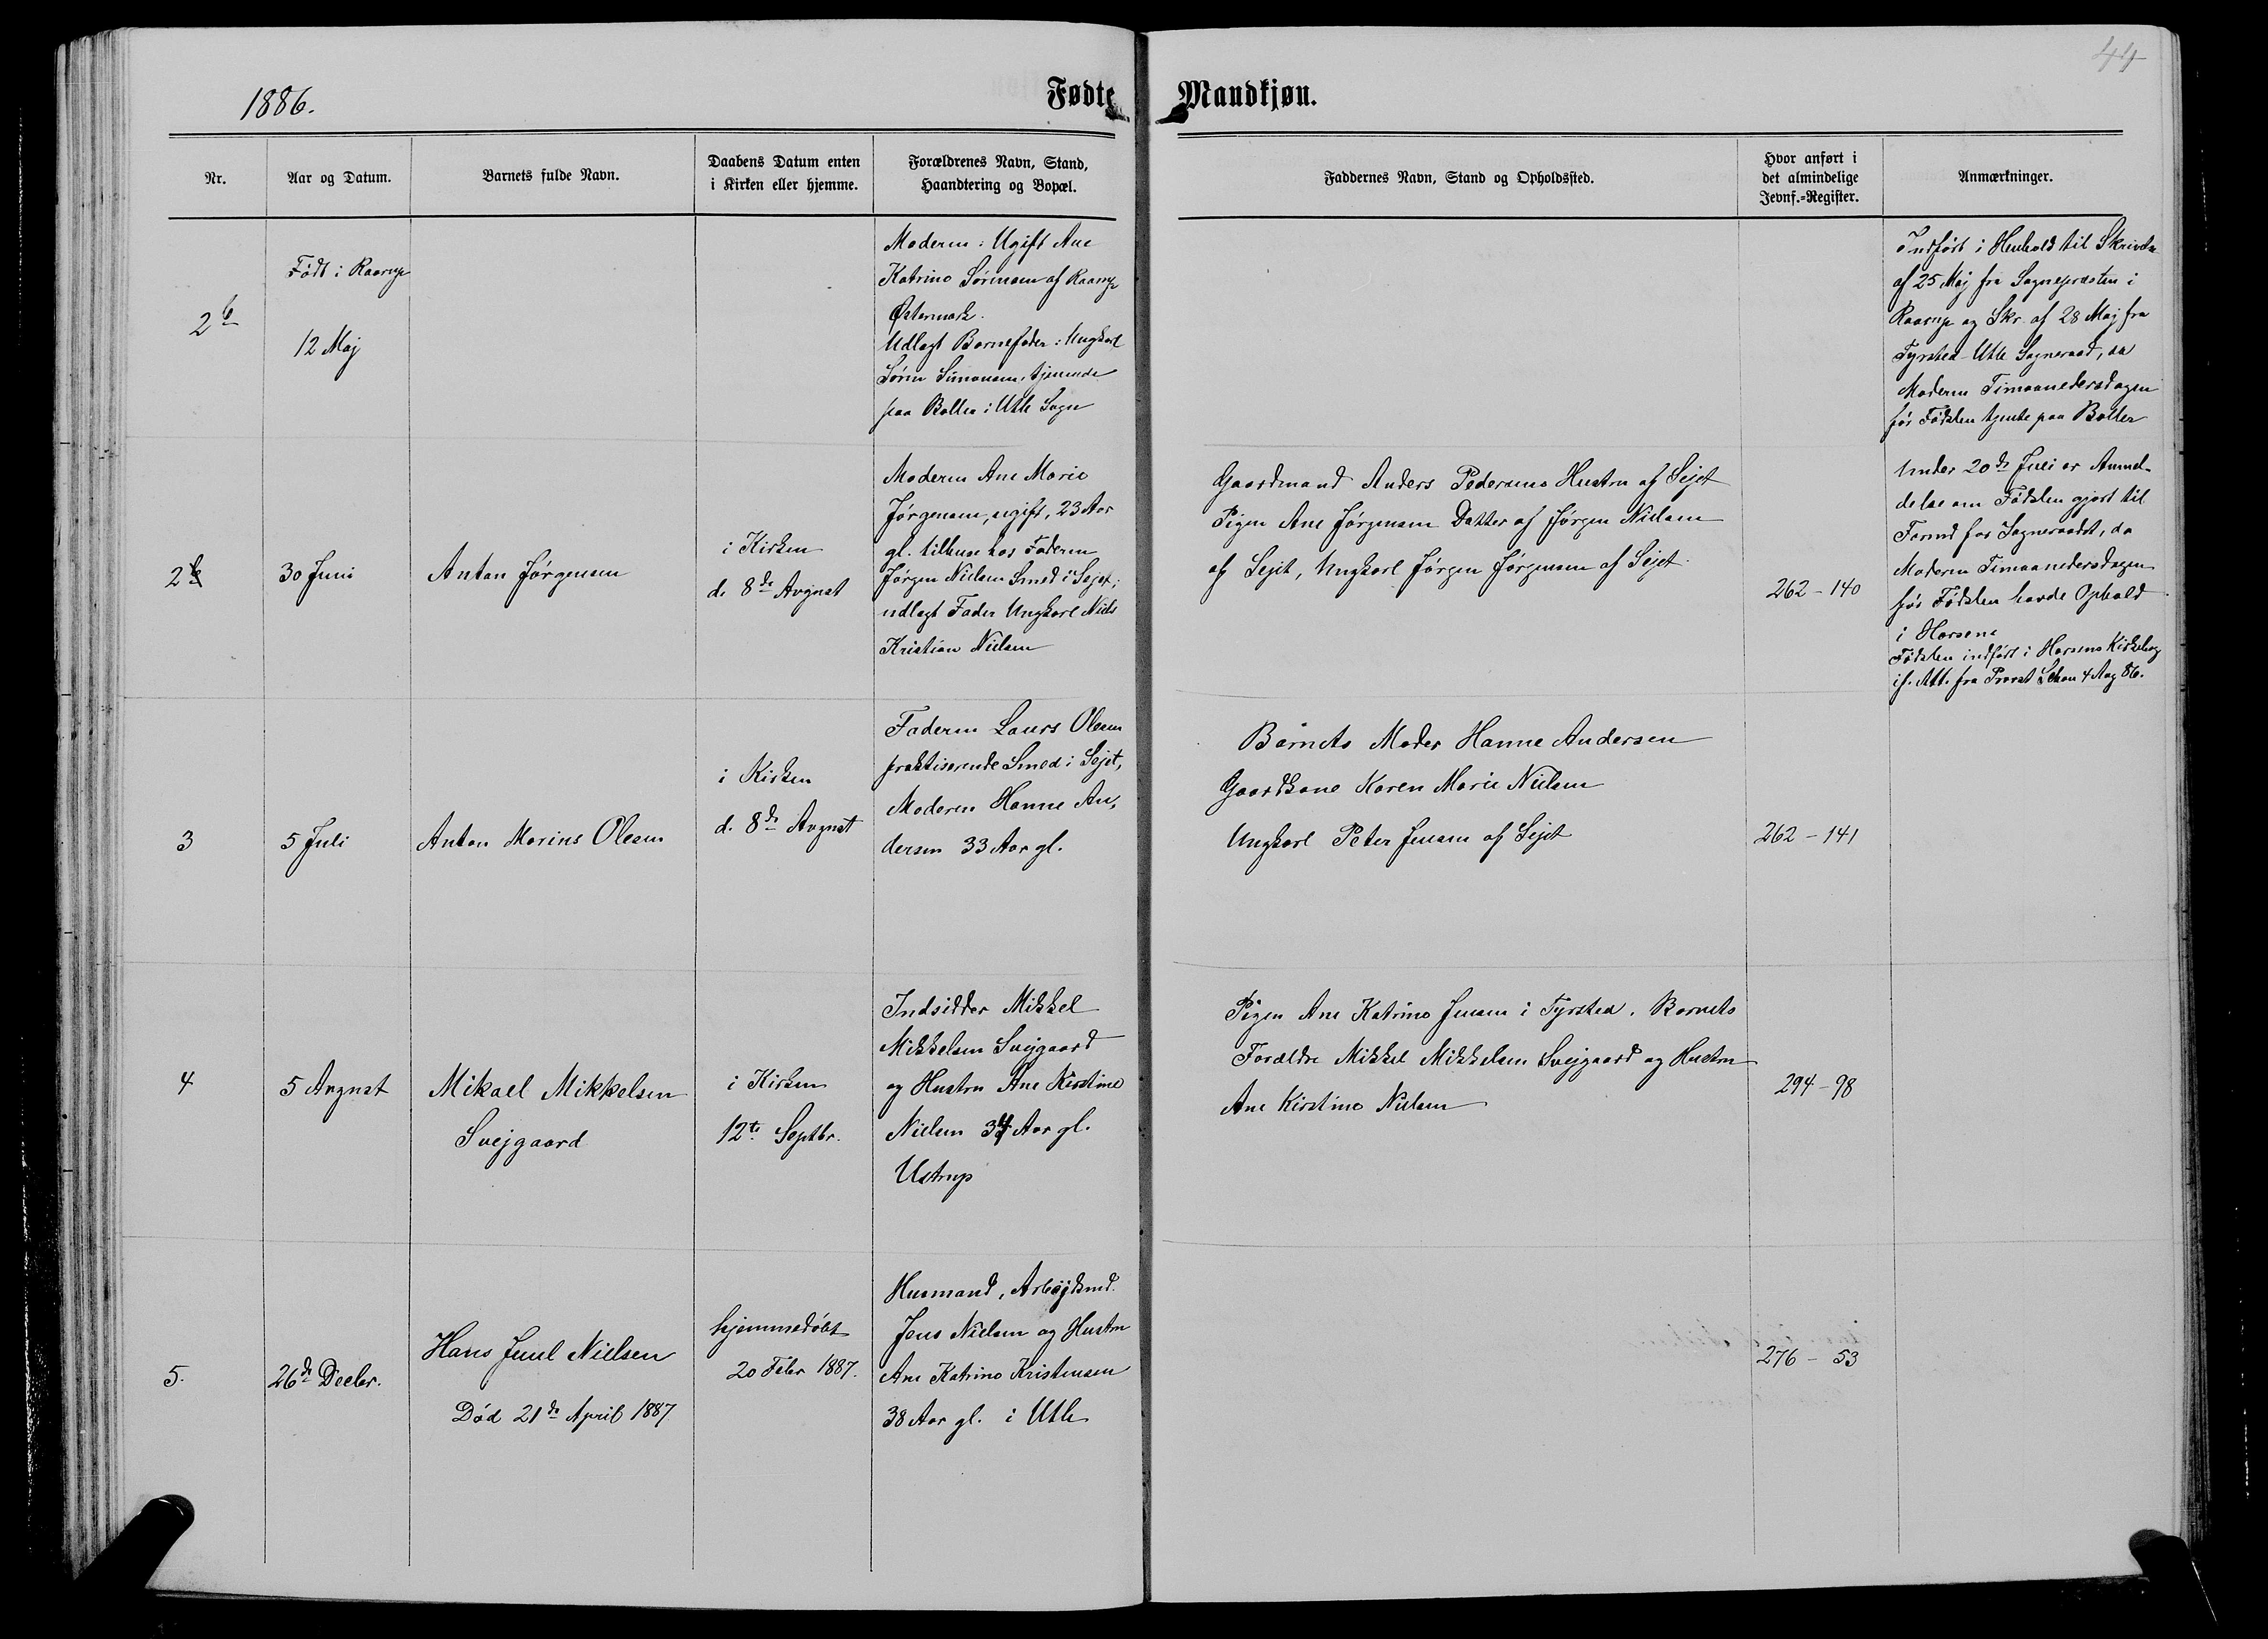 44
1886.
Fødte Mandkjøn.
Nr.
Aar og Datum.
Barnets fulde Navn.
Daabens Datum enten
i Kirken eller hjemme.
Forældrenes Navn, Stand,
Haandtering og Bopæl.
Faddernes Navn, Stand og Opholdssted.
Hvor anført i
det almindelige
Jevnf.-Register.
Anmærkninger.
2b
Født i Raarup
12 Maj
Moderen: Ugift Ane
Katrine Sørensen af Raarup
Østermark.
Udlagt Barnefader: Ungkarl
Søren Simonsen, tjenende
paa Boller i Uth Sogn
Indført i Henhold til Skrivelse
af 25 Maj fra Sognepræsten i
Raarup og Skr. af 28 Maj fra
Tyrsted-Uth Sogneraad, da
Moderen Timaanedersdagen
før Fødslen tjente paa Boller
2
30 Juni
Anton Jørgensen
i Kirken
d. 8de August
Moderen Ane Marie
Jørgensen, ugift, 23 Aar
gl. tilhuse hos Faderen
Jørgen Nielsen Smed i Sejet;
udlagt Fader Ungkarl Niels
Kristian Nielsen
Gaardmand Anders Pedersens Hustru af Sejet
Pigen Ane Jørgensen Datter af Jørgen Nielsen
af Sejet, Ungkarl Jørgen Jørgensen af Sejet
262-140
Under 20de Juli er Anmel-
delse om Fødslen gjort til
Formd for Sogneraadet, da
Moderen Timaanedersdagen
før Fødslen havde Ophold
i Horsens
Fødslen indført i Horsens Kirkebog
if. Att. fra Provst 4 Aug 86.
3
5 Juli
Anton Marius Olesen
i Kirken
d. 8de August
Faderen Laurs Olesen
praktiserende Smed i Sejet,
Moderen Hanne An-
dersen 33 Aar gl.
Barnets Moder Hanne Andersen
Gaardkone Karen Marie Nielsen
Ungkarl Peter Jensen af Sejet
262-141
4
5 August
Mikael Mikkelsen
Svejgaard
i Kirken
12te Septbr.
Indsidder Mikkel
Mikkelsen Svejgaard
og Hustru Ane Kirstine
Nielsen 34 Aar gl.
Ustrup
Pigen Ane Katrine Jensen i Tyrsted. Barnets
Forældre Mikkel Mikkelsen Svejgaard og Hustru
Ane Kirstine Nielsen
294-98
5.
26de Decbr.
Hans Juul Nielsen
Død 21de April 1887
hjemmedøbt
20 Febr 1887.
Husmand, Arbejdsmd.
Jens Nielsen og Hustru
Ane Katrine Kristensen
38 Aar gl. i Uth
276-53